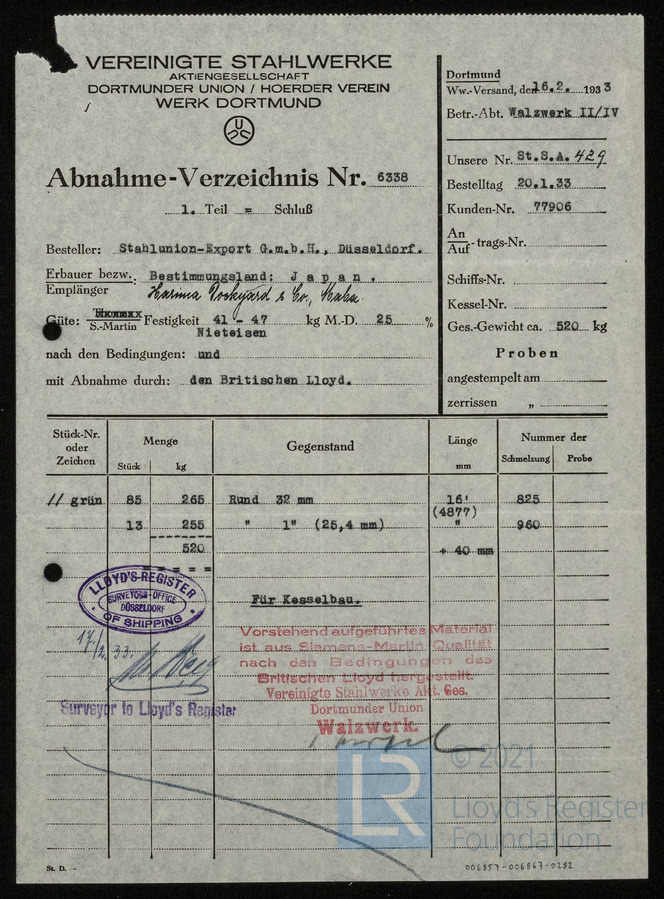 VEREINIGTE STAHLWERKE
AKTIENGESELLSCHAFT
DORTMUNDER UNION / HOERDER VEREIN
WERK DORTMUND
Abnahme-Verzeichnis Nr. 6338
1. Teil = Schluß
Besteller: Stahlunion-Export G.m.b.H., Düsseldorf.
Erbauer bezw. Empfänger: Bestimmungsland: Japan.
Harima Dockyard & Co.,
Güte: S.-Martin Festigkeit 41 - 47 kg M.-D. 25 %
Nieteisen
nach den Bedingungen: und
mit Abnahme durch: den Britischen Lloyd.
Dortmund
Ww.-Versand, den 16.2. 1933
Betr.-Abt. Walzwerk II/IV
Unsere Nr. St.S.A. 429
Bestelltag 20.1.33
Kunden-Nr. 77906
An
Auf-trags-Nr.
Schiffs-Nr.
Kessel-Nr.
Ges.-Gewicht ca. 520 kg
Proben
angestempelt am
zerrissen „
Stück-Nr. oder Zeichen Menge Gegenstand Länge Nummer der
Stück kg mm Schmelzung Probe
// grün 85 265 Rund 32 mm 16' 825
(4877)
13 255 " 1" (25,4 mm) " 960
520 + 40 mm
Für Kesselbau.
LLOYD'S REGISTER
SURVEYORS OFFICE
DÜSSELDORF
OF SHIPPING
17/2 33.
Surveyor to Lloyd's Register
Vorstehend aufgeführtes Material
ist aus Siemens-Martin Qualität
nach den Bedingungen des
Britischen Lloyd hergestellt.
Vereinigte Stahlwerke Akt. Ges.
Dortmunder Union
Walzwerk.
LR
© 2021
Lloyd's Register
Foundation
St. D.
006857-006867-0282